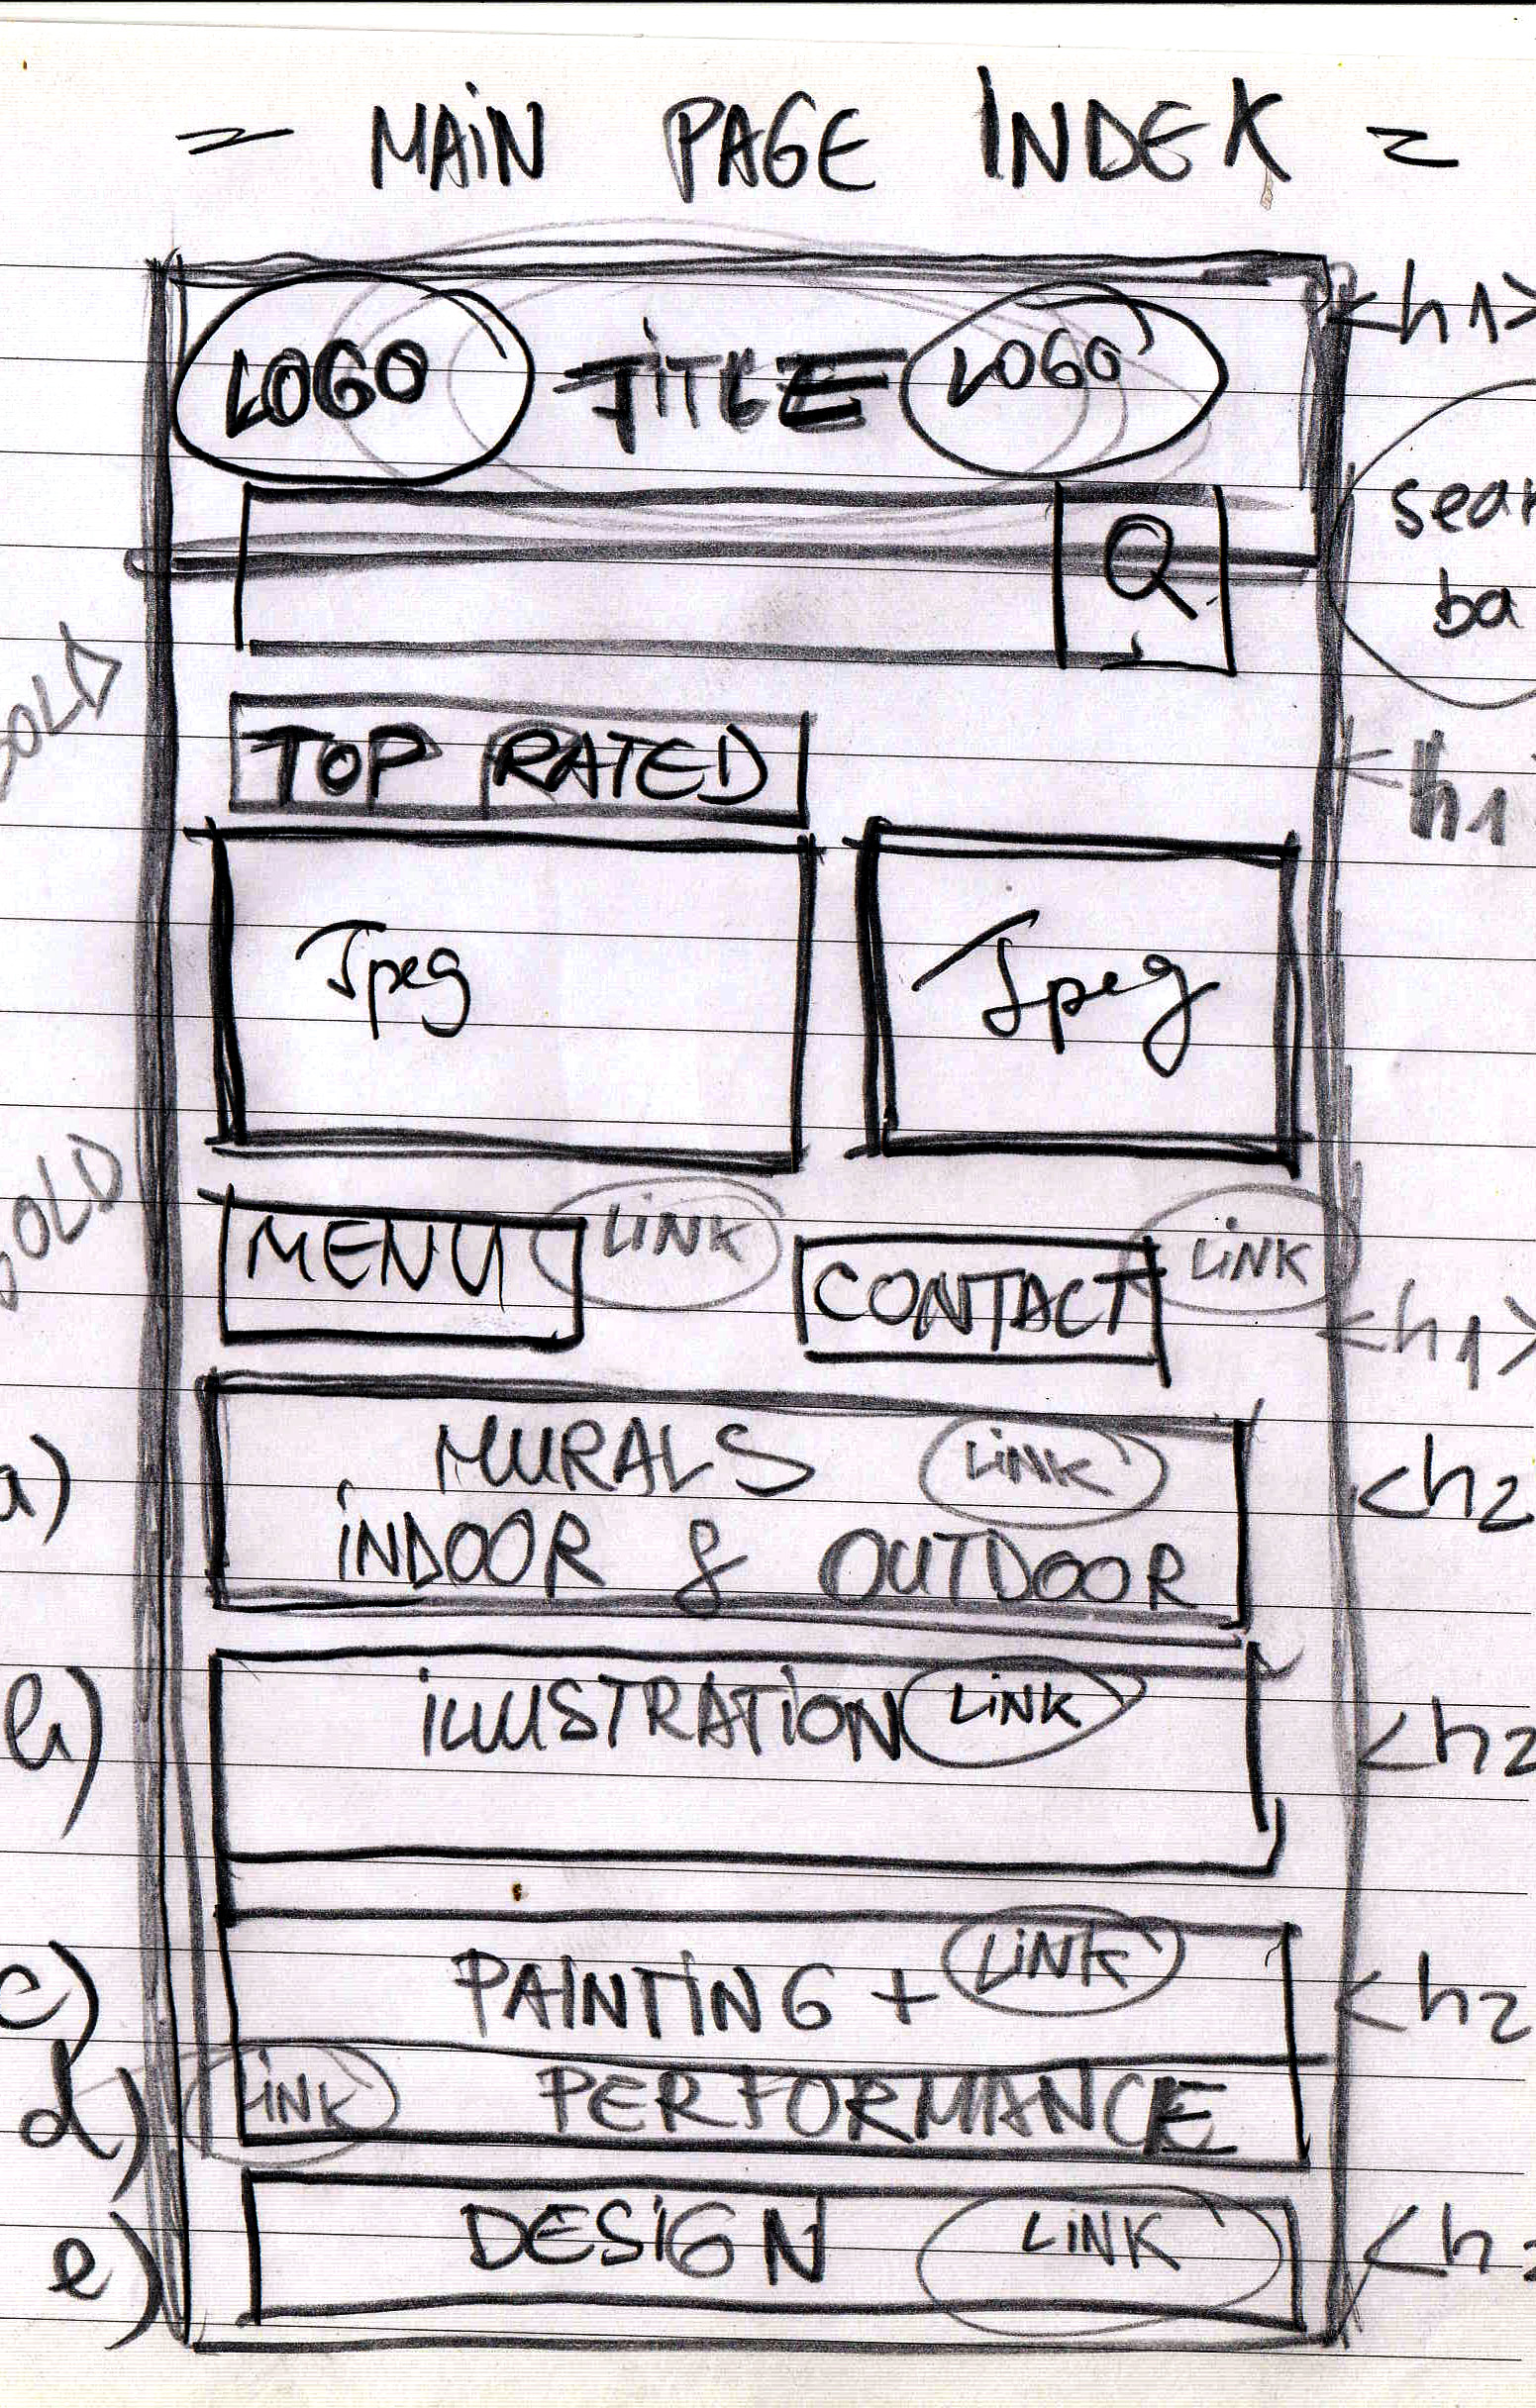 = MAIN PAGE INDEX =
LOGO TITLE LOGO <h1>
Q sear
ba
TOP RATED <h1
Jpeg Jpeg
MENU LINK CONTACT LINK <h1>
a) MURALS LINK <h2
INDOOR & OUTDOOR
b) ILLUSTRATION LINK <h2
c) PAINTING + LINK <h2
d) LINK PERFORMANCE
e) DESIGN LINK <h2